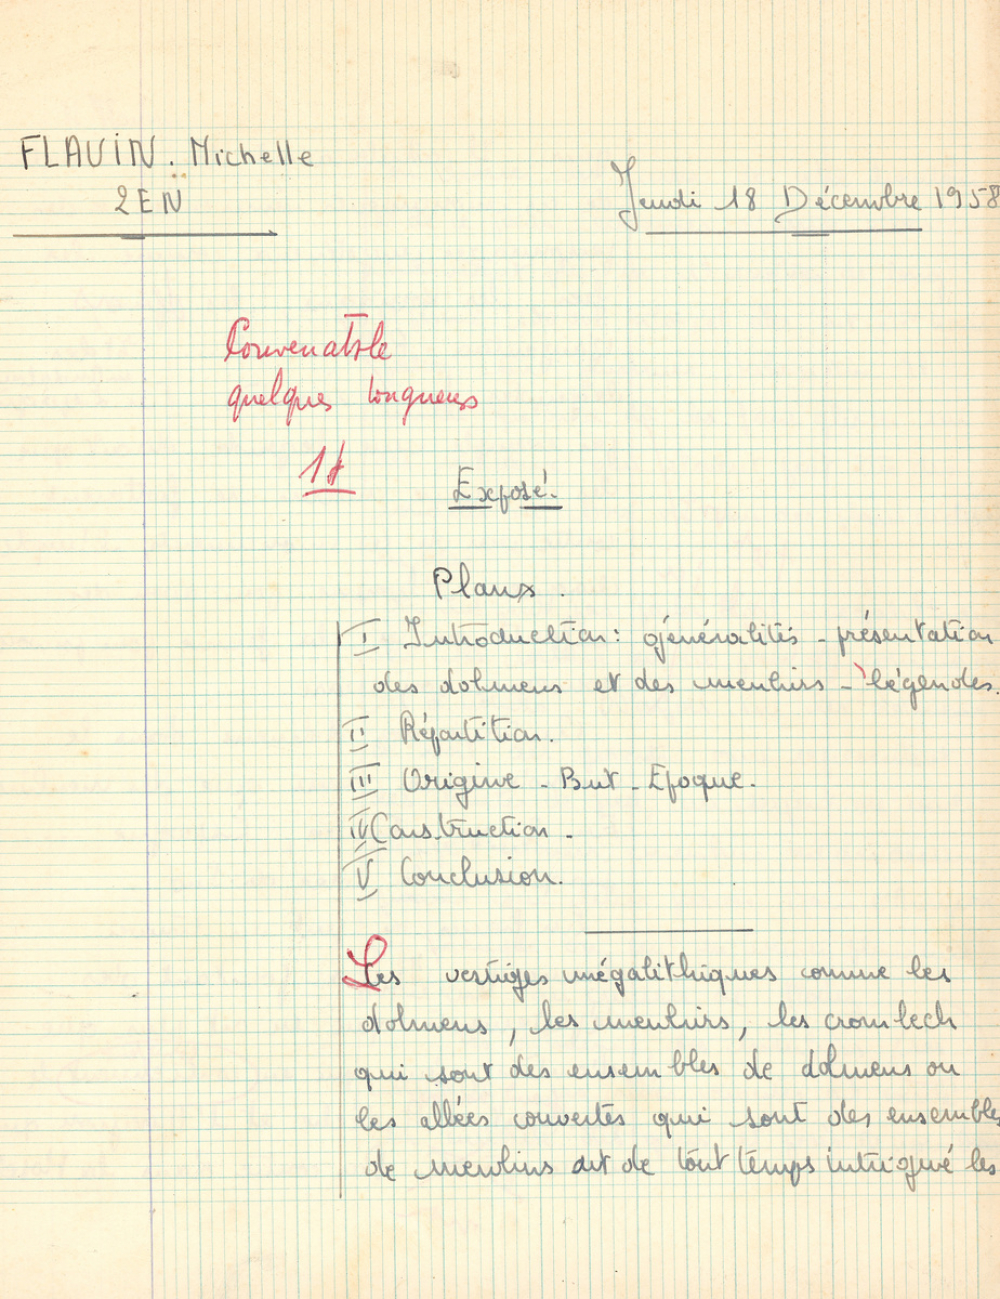 FLAVIN. Michelle
2EN
Jeudi 18 Décembre 1958
Convenable
quelques longueurs
Exposé.
Plans.
I Introduction: générálités - présentation
des dolmens et des menhirs - légendes.
II Répartition.
III Origine - But - Epoque.
IV Construction.
V Conclusion.
Les vestiges mégalithiques comme les
dolmens, les menhirs, les cromlech
qui sont des ensembles de dolmens ou
les allées couvertes qui sont des ensembles
de menhirs ont de tout temps intrigué les